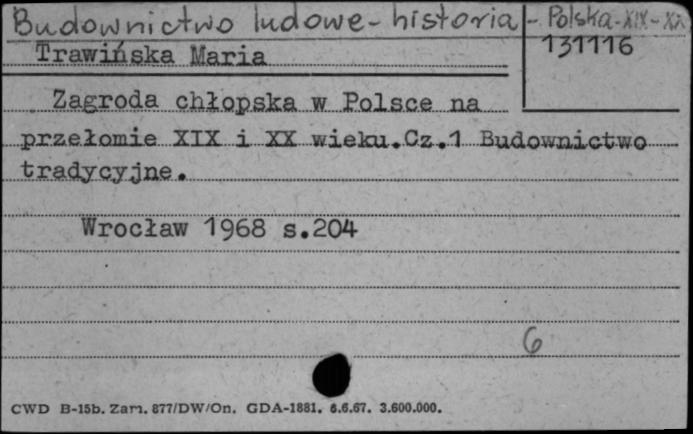 Budownictwo ludowe - historia - Polska - XIX - XX
131116
Trawińska Maria
Zagroda chłopska w Polsce na
przełomie XIX i XX wieku.Cz.1 Budownictwo
tradycyjne.
Wrocław 1968 s.204
6
CWD B-15b. Zam. 877/DW/On. GDA-1881. 6.6.67. 3.600.000.